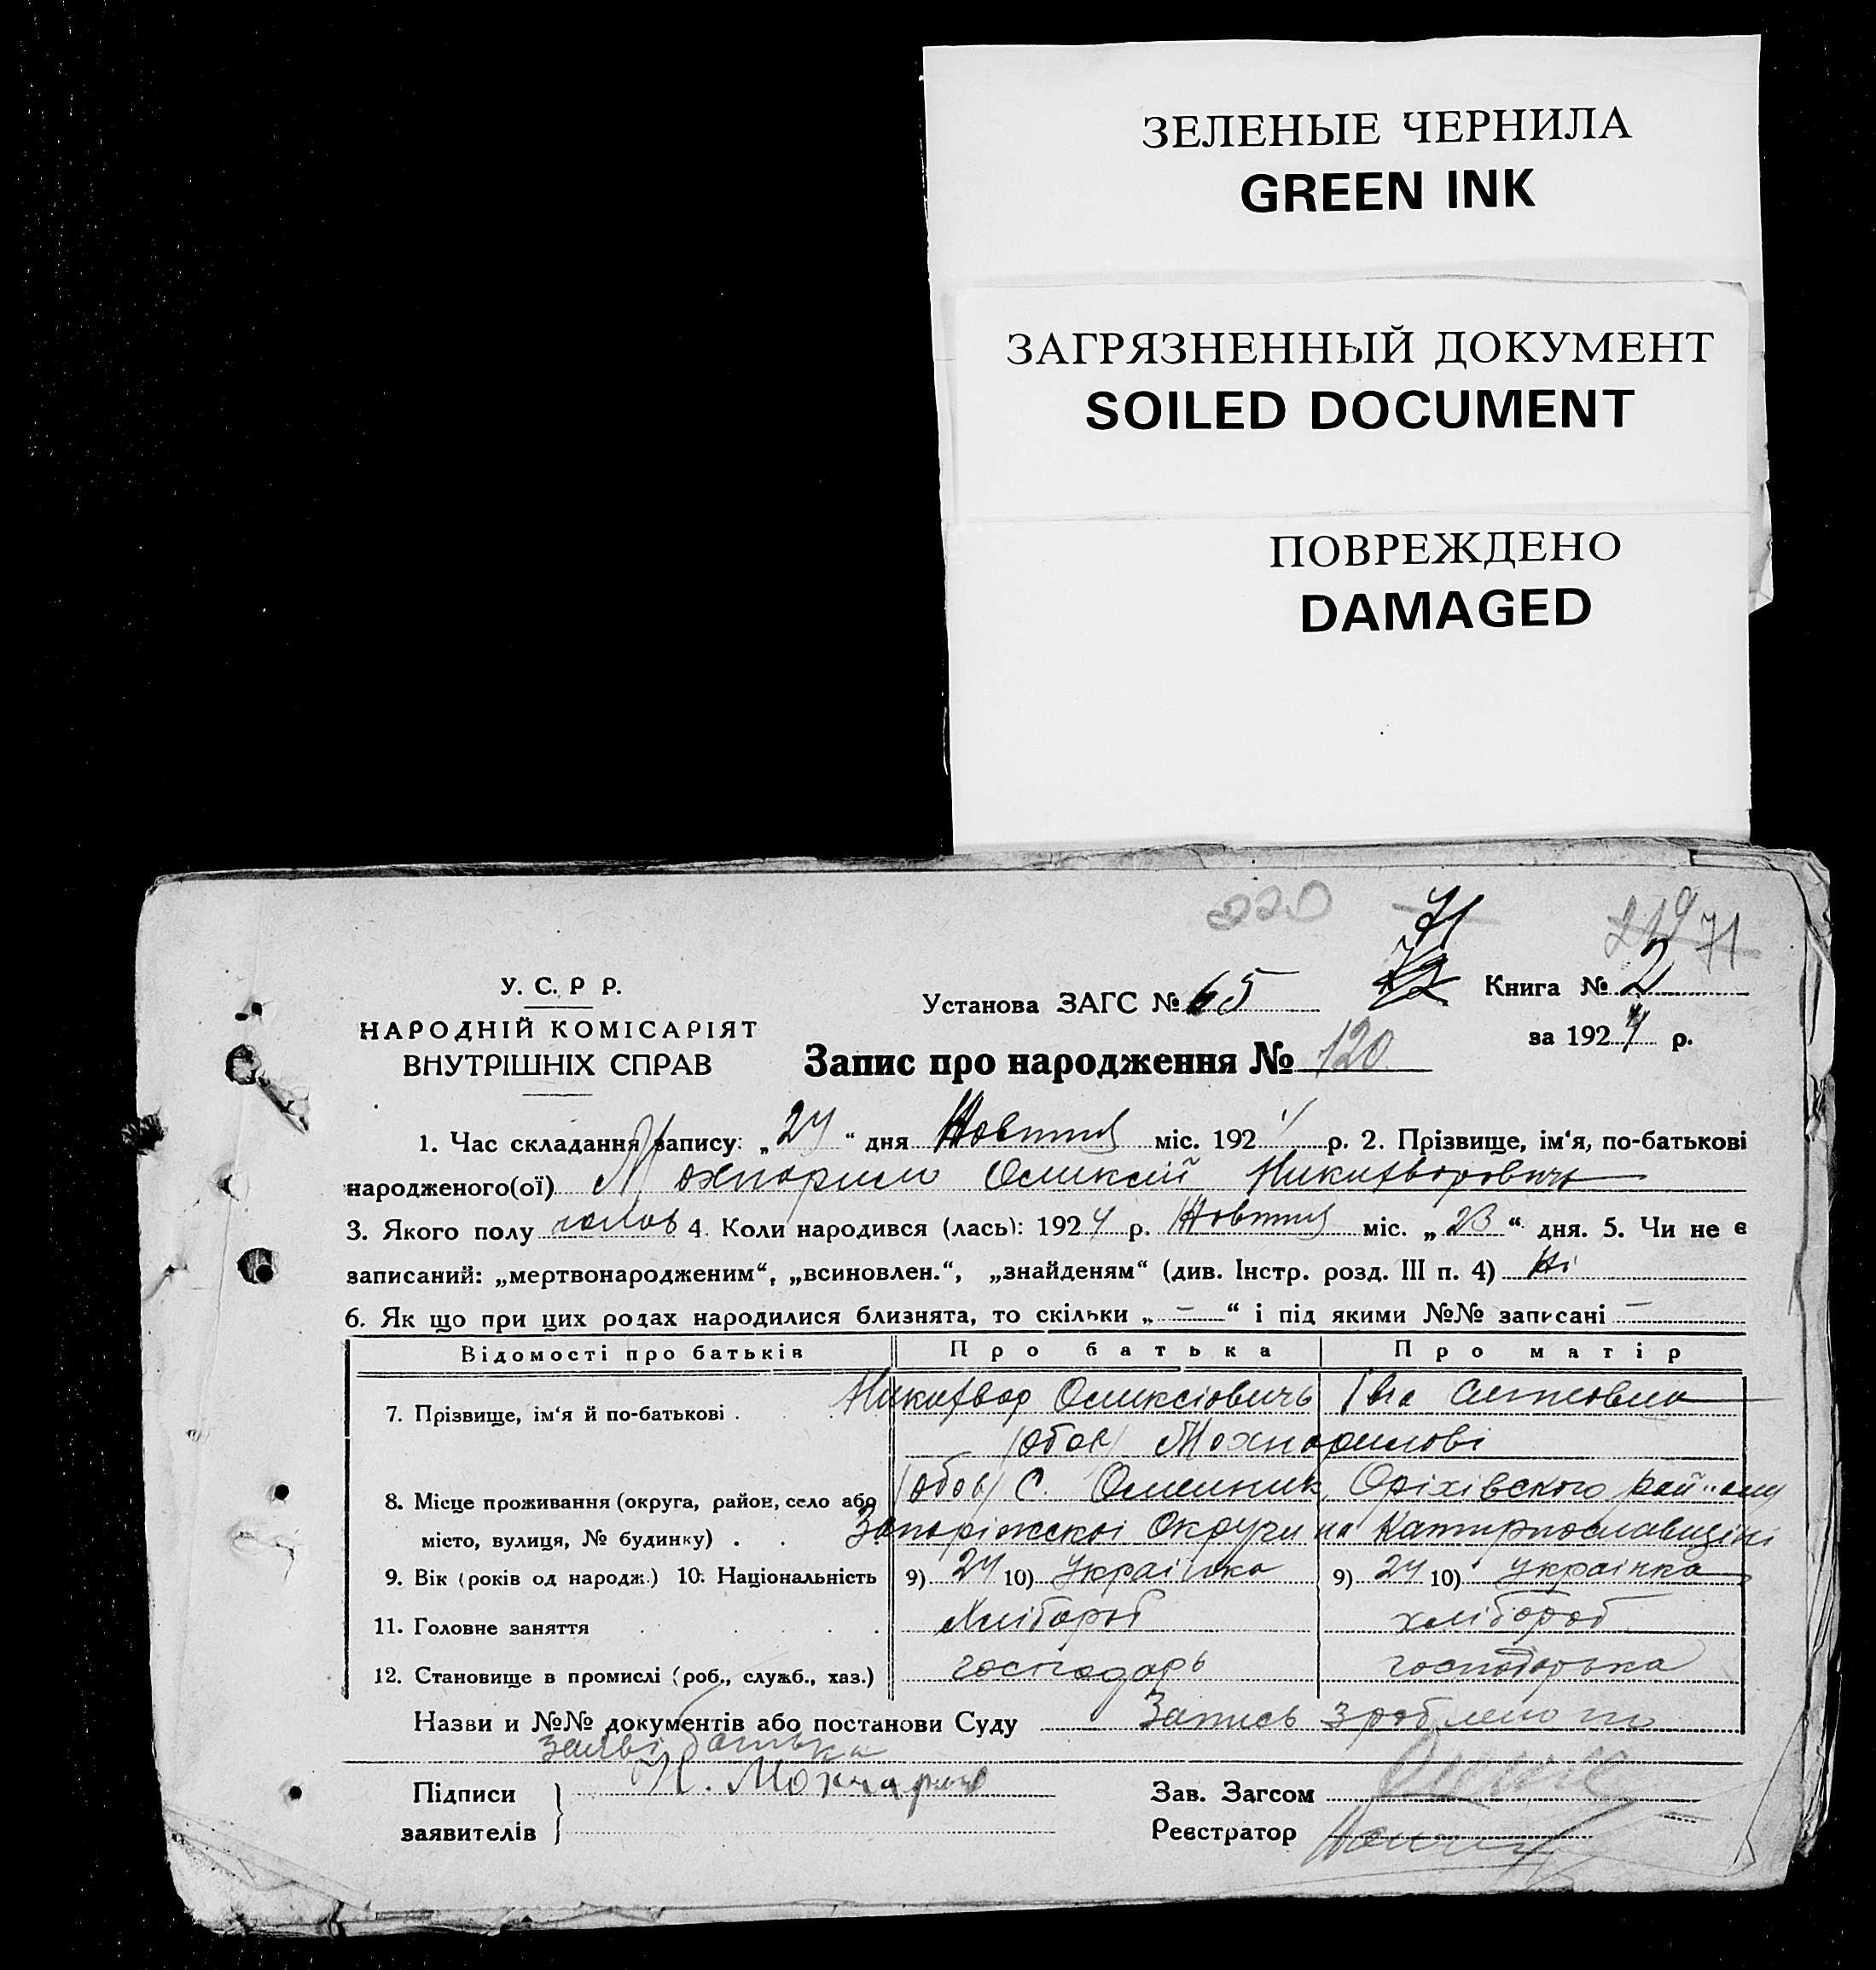 ЗЕЛЕНЫЕ ЧЕРНИЛА
GREEN INK
ЗАГРЯЗНЕННЫЙ ДОКУМЕНТ
SOILED DOCUMENT
ПОВРЕЖДЕНО
DAMAGED
220 71 71
У. С. Р Р.
НАРОДНІЙ КОМІСАРІЯТ
ВНУТРІШНІХ СПРАВ
Установа ЗАГС № 65
Книга № 2
за 1924 р.
Запис про народження № 120
1. Час складання запису: „24“ дня Жовтня міс. 1924 р. 2. Прізвище, ім‘я, по-батькові
народженого(ої) Оликсій Никихворовичь
3. Якого полу 4. Коли народився (лась): 1924 р. Жовтня міс. „23“ дня. 5. Чи не є
записаний: „мертвонародженим“, „всиновлен.“, „знайденям“ (див. Інстр. розд. III п. 4) Ні
6. Як що при цих родах народилися близнята, то скільки „—“ і під якими №№ записані —
Відомості про батьків Про батька Про матір
7. Прізвище, ім‘я й по-батькові . Никихвор Оликсіовичь
/обов/
8. Місце проживання (округа, район, село або /обов/ С. Омельник, Оріхівского
місто, вулиця, № будинку) . . Запоріжскоі Округи на Катирнославщіні
9. Вік (років од народж.) 10. Національність 9) 24 10) Украінка 9) 24 10) украінка
11. Головне заняття . . . . Хлібороб хлібороб
12. Становище в промислі (роб., служб., хаз.) господарь господорька
Назви и №№ документів або постанови Суду Запись зроблено по
заяві батька
Підписи Н.
заявителів
Зав. Загсом
Реєстратор